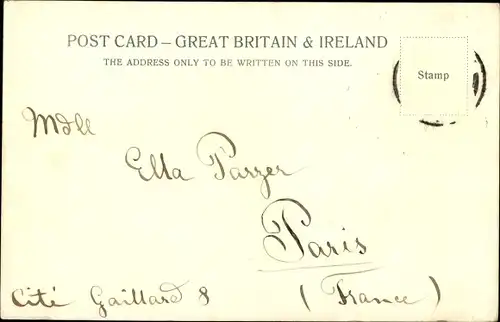 POST CARD – GREAT BRITAIN & IRELAND
THE ADDRESS ONLY TO BE WRITTEN ON THIS SIDE.
Stamp
Mdlle
Ella Parzer
Paris
Cité Gaillard 8 (France)